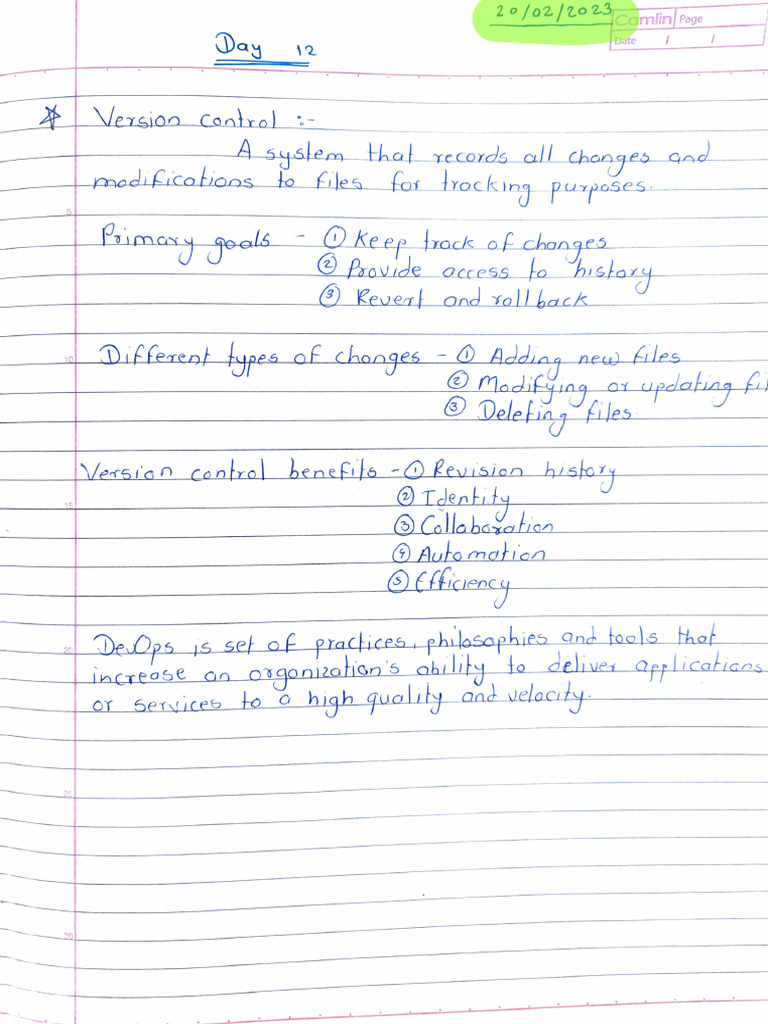 20/02/2023
Camlin Page
Date / /
Day 12
Version control :-
A system that records all changes and
modifications to files for tracking purposes.
5
Primary goals - ① Keep track of changes
② Provide access to history
③ Revert and rollback
10
Different types of changes - ① Adding new files
② Modifying or updating fil
③ Deleting files.
Version control benefits - ① Revision history
15
② Identity
③ Collaboration
④ Automation
⑤ Efficiency
20
DevOps is set of practices, philosophies and tools that
increase an organization's ability to deliver applications
or services to a high quality and velocity.
25
30